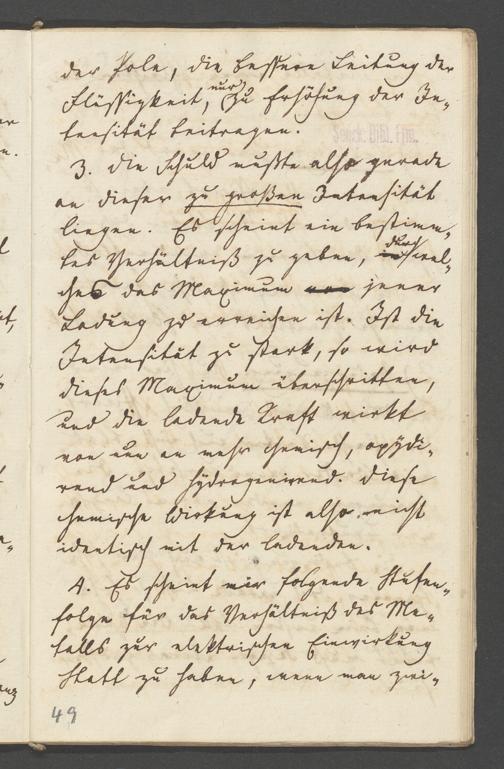 der Pole, die bessere Leitung der
Flüssigkeit, nur zu Erhöhung der In-
tensität beitragen.
Senck. Bibl. Ffm.
3. die Schuld mußte also gerade
an dieser zu großen Intensität
liegen. Es scheint ein bestimm-
tes Verhältniß zu geben, durch wel-
ches das Maximum jener
Ladung zu erreichen ist. Ist die
Intensität zu stark, so wird
dieses Maximum überschritten,
und die ladende Kraft wirkt
von nun an mehr chemisch, oxydi-
rend und hydrogenirend. Diese
chemische Wirkung ist also nicht
identisch mit der ladenden.
4. Es scheint mir folgende Stufen-
folge für das Verhältniß des Me-
talls zur elektrischen Einwirkung
statt zu haben, wenn man zwi-
49